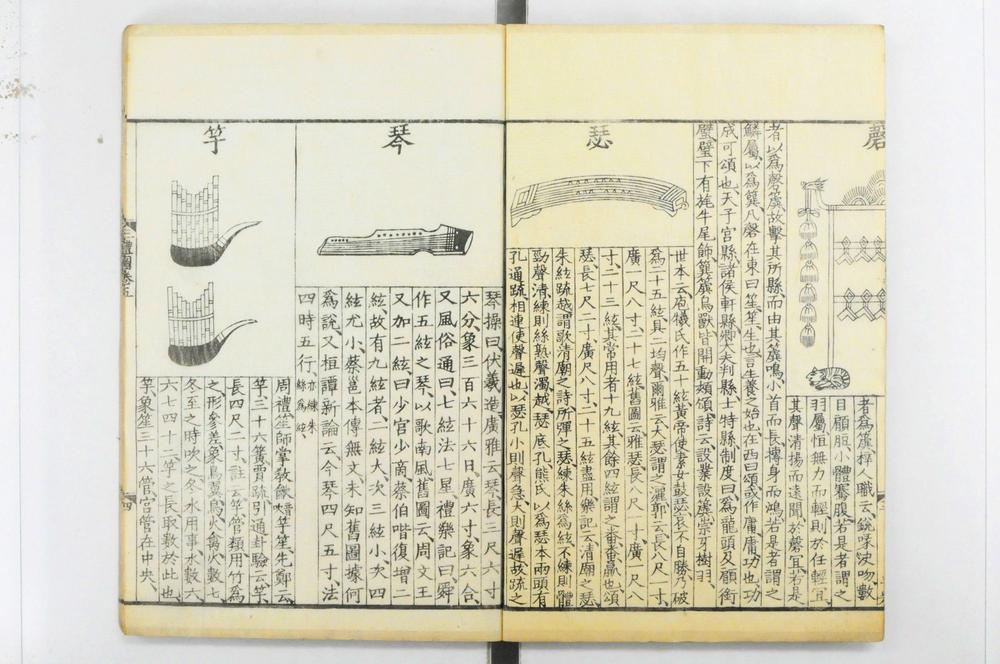 磬
者爲簨梓職云銳喙決吻數
目顧脰小體騫腹若是者謂之
羽屬恒無力而輕則於任輕宜
其聲清揚而遠聞於磬宜若是
者以爲磬簴故擊其所縣而由其簴鳴小首而長摶身而鴻若是者謂之
鱗屬以爲簨凡磬在東曰笙笙生也言生養之始也在西曰頌或作庸庸功也功
成可頌也天子宮縣諸侯軒縣卿大夫判縣士特縣制度曰爲龍頭及顧銜
璧璧下有旄牛尾飾簨簴鳥獸皆開動頰頌詩云設業設簴崇牙樹羽
瑟
世本云庖犧氏作五十絃黃帝使素女鼓瑟哀不自勝乃破
爲二十五絃具二均聲爾雅云大瑟謂之灑郭云長八尺一寸
廣一尺八寸二十七絃舊圖云雅瑟長八尺一寸廣一尺八
寸二十三絃其常用者十九絃其餘四絃謂之番番贏也頌
瑟長七尺二寸廣尺八寸二十五絃盡用樂記云清廟之瑟
朱絃疏越謂歌清廟之詩所彈之瑟練朱絲爲絃不練則體
勁聲清練則絲熟聲濁越瑟底孔熊氏以爲瑟本兩頭有
孔通疏相連使聲遲也以瑟孔小則聲急大則聲遲故疏之
琴
琴操曰伏羲造廣雅云琴長三尺六寸
六分象三百六十六日廣六寸象六合
又風俗通曰七絃法七星禮樂記曰舜
作五絃之琴以歌南風舊圖云周文王
又加二絃曰少宮少商蔡伯喈復增二
絃故有九絃者二絃大次三絃小次四
絃尤小蔡邕本傳無文未知舊圖據何
爲說又桓譚新論云今琴四尺五寸法
四時五行亦練朱絲爲絃
竽
周禮笙師掌教龡竽笙先鄭云
竽三十六簧賈疏引通卦驗云竽
長四尺二寸註云竽管類用竹爲
之形參差象鳥翼鳥火禽火數七
冬至之時吹之冬水用事水數六
六七四十二竽之長取數於此也
竽象笙三十六管宮管在中央
三禮圖卷五
四